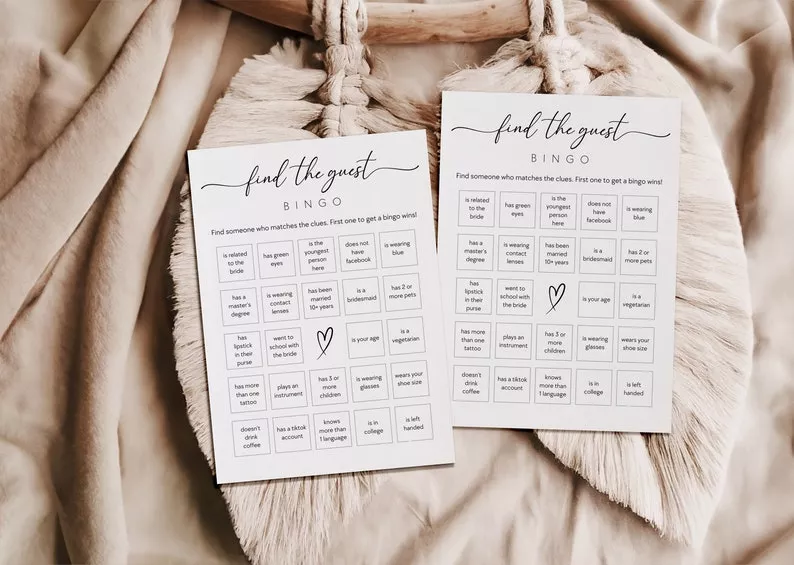 find the guest
BINGO
Find someone who matches the clues. First one to get a bingo wins!
is related
to the
bride
has green
eyes
is the
youngest
person
here
does not
have
facebook
is wearing
blue
has a
master's
degree
is wearing
contact
lenses
has been
married
10+ years
is a
bridesmaid
has 2 or
more pets
has
lipstick
in their
purse
went to
school with
the bride
is your age
is a
vegetarian
has more
than one
tattoo
plays an
instrument
has 3 or
more
children
is wearing
glasses
wears your
shoe size
doesn't
drink
coffee
has a tiktok
account
knows
more than
1 language
is in
college
is left
handed
find the guest
BINGO
Find someone who matches the clues. First one to get a bingo wins!
is related
to the
bride
has green
eyes
is the
youngest
person
here
does not
have
facebook
is wearing
blue
has a
master's
degree
is wearing
contact
lenses
has been
married
10+ years
is a
bridesmaid
has 2 or
more pets
has
lipstick
in their
purse
went to
school with
the bride
is your age
is a
vegetarian
has more
than one
tattoo
plays an
instrument
has 3 or
more
children
is wearing
glasses
wears your
shoe size
doesn't
drink
coffee
has a tiktok
account
knows
more than
1 language
is in
college
is left
handed